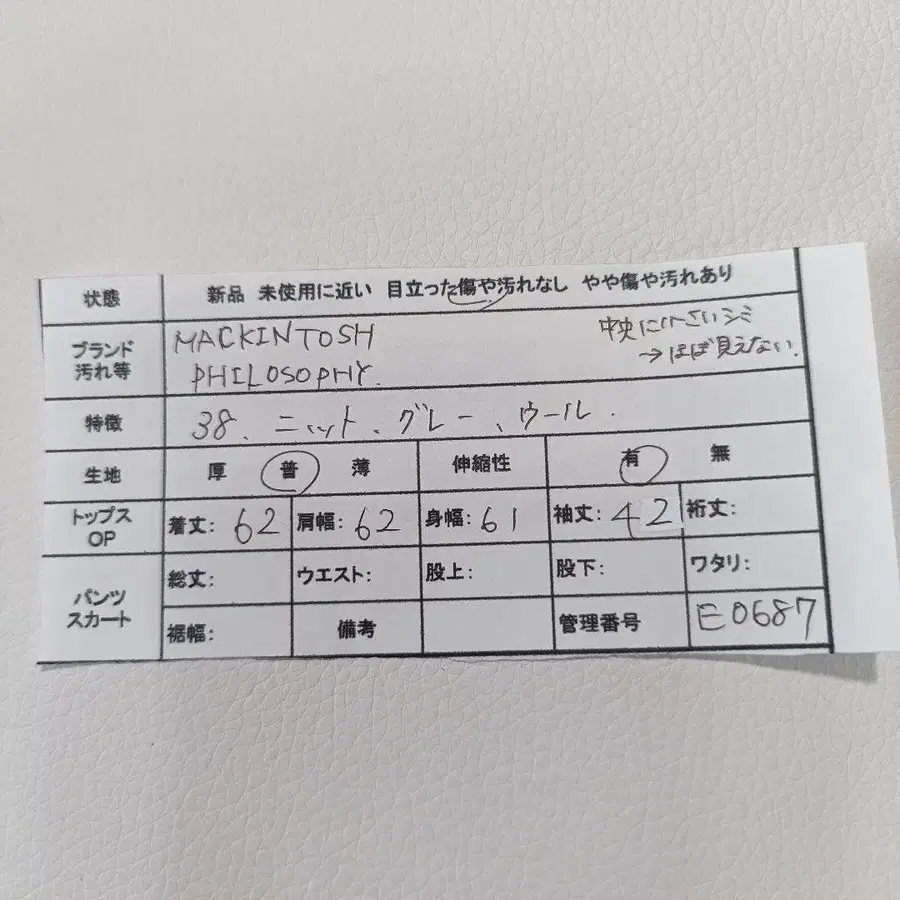 状態 新品 未使用に近い 目立った傷や汚れなし やや傷や汚れあり
ブランド
汚れ等
MACKINTOSH
PHILOSOPHY.
中央に小さいシミ
→ほぼ見えない.
特徴 38、ニット、グレー、ウール.
生地 厚 普 薄 伸縮性 有 無
トップス
OP
着丈: 62 肩幅: 62 身幅: 61 袖丈: 42 裄丈:
パンツ
スカート
総丈: ウエスト: 股上: 股下: ワタリ:
裾幅: 備考 管理番号 E0687